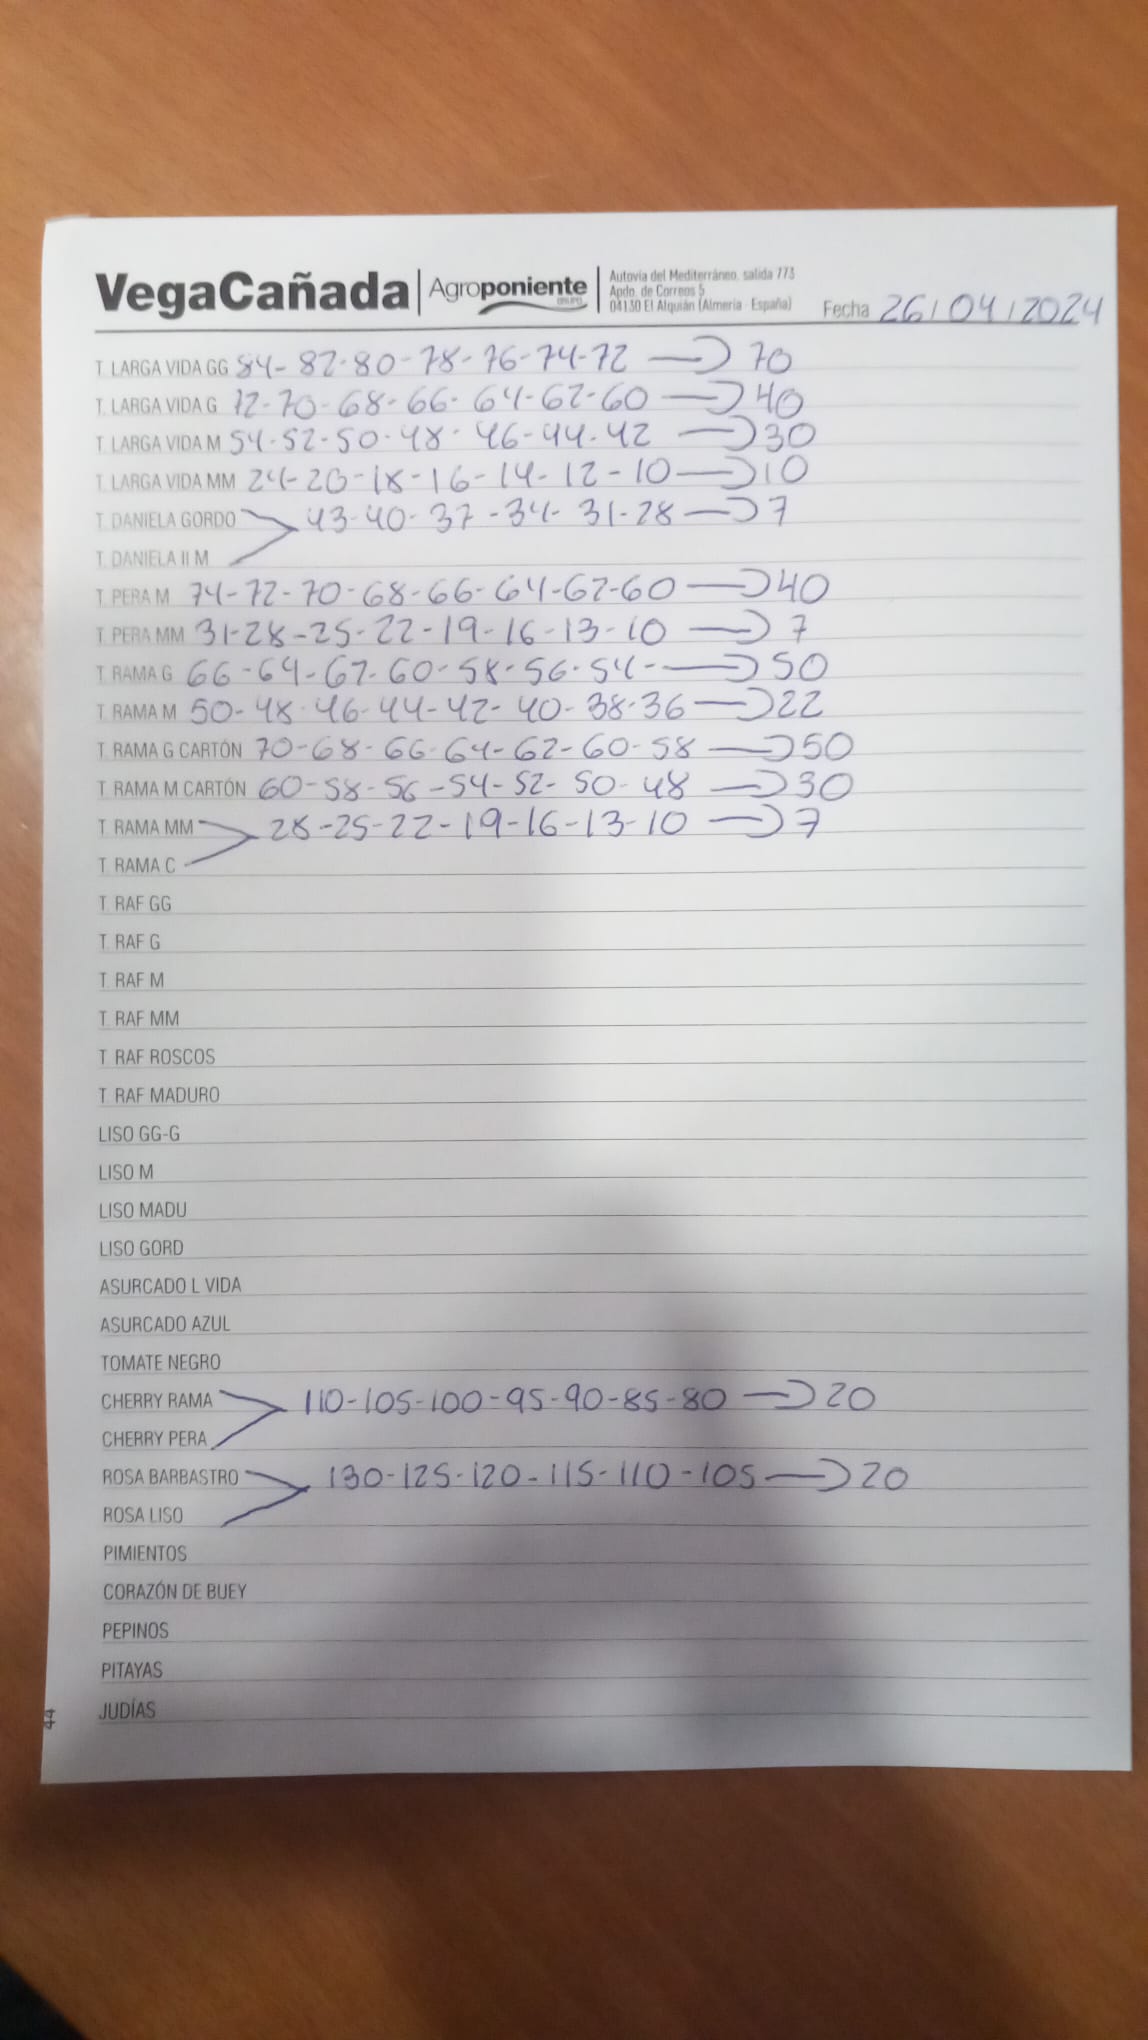 VegaCañada
Agroponiente
GRUPO
Autovía del Mediterráneo, salida 773
Apdo. de Correos 5
04130 El Alquián (Almería - España)
Fecha 26/04/2024
T. LARGA VIDA GG 84-82-80-78-76-74-72 → 70
T. LARGA VIDA G 72-70-68-66-64-62-60 → 40
T. LARGA VIDA M 54-52-50-48-46-44-42 → 30
T. LARGA VIDA MM 24-20-18-16-14-12-10 → 10
T. DANIELA GORDO 43-40-37-34-31-28 → 7
T. DANIELA II M
T. PERA M 74-72-70-68-66-64-62-60 → 40
T. PERA MM 31-28-25-22-19-16-13-10 → 7
T. RAMA G 66-64-62-60-58-56-54- → 50
T. RAMA M 50-48-46-44-42-40-38-36 → 22
T. RAMA G CARTÓN 70-68-66-64-62-60-58 → 50
T. RAMA M CARTÓN 60-58-56-54-52-50-48 → 30
T. RAMA MM 28-25-22-19-16-13-10 → 7
T. RAMA C
T. RAF GG
T. RAF G
T. RAF M
T. RAF MM
T. RAF ROSCOS
T. RAF MADURO
LISO GG-G
LISO M
LISO MADU
LISO GORD
ASURCADO L VIDA
ASURCADO AZUL
TOMATE NEGRO
CHERRY RAMA 110-105-100-95-90-85-80 → 20
CHERRY PERA
ROSA BARBASTRO 130-125-120-115-110-105 → 20
ROSA LISO
PIMIENTOS
CORAZÓN DE BUEY
PEPINOS
PITAYAS
JUDÍAS
44